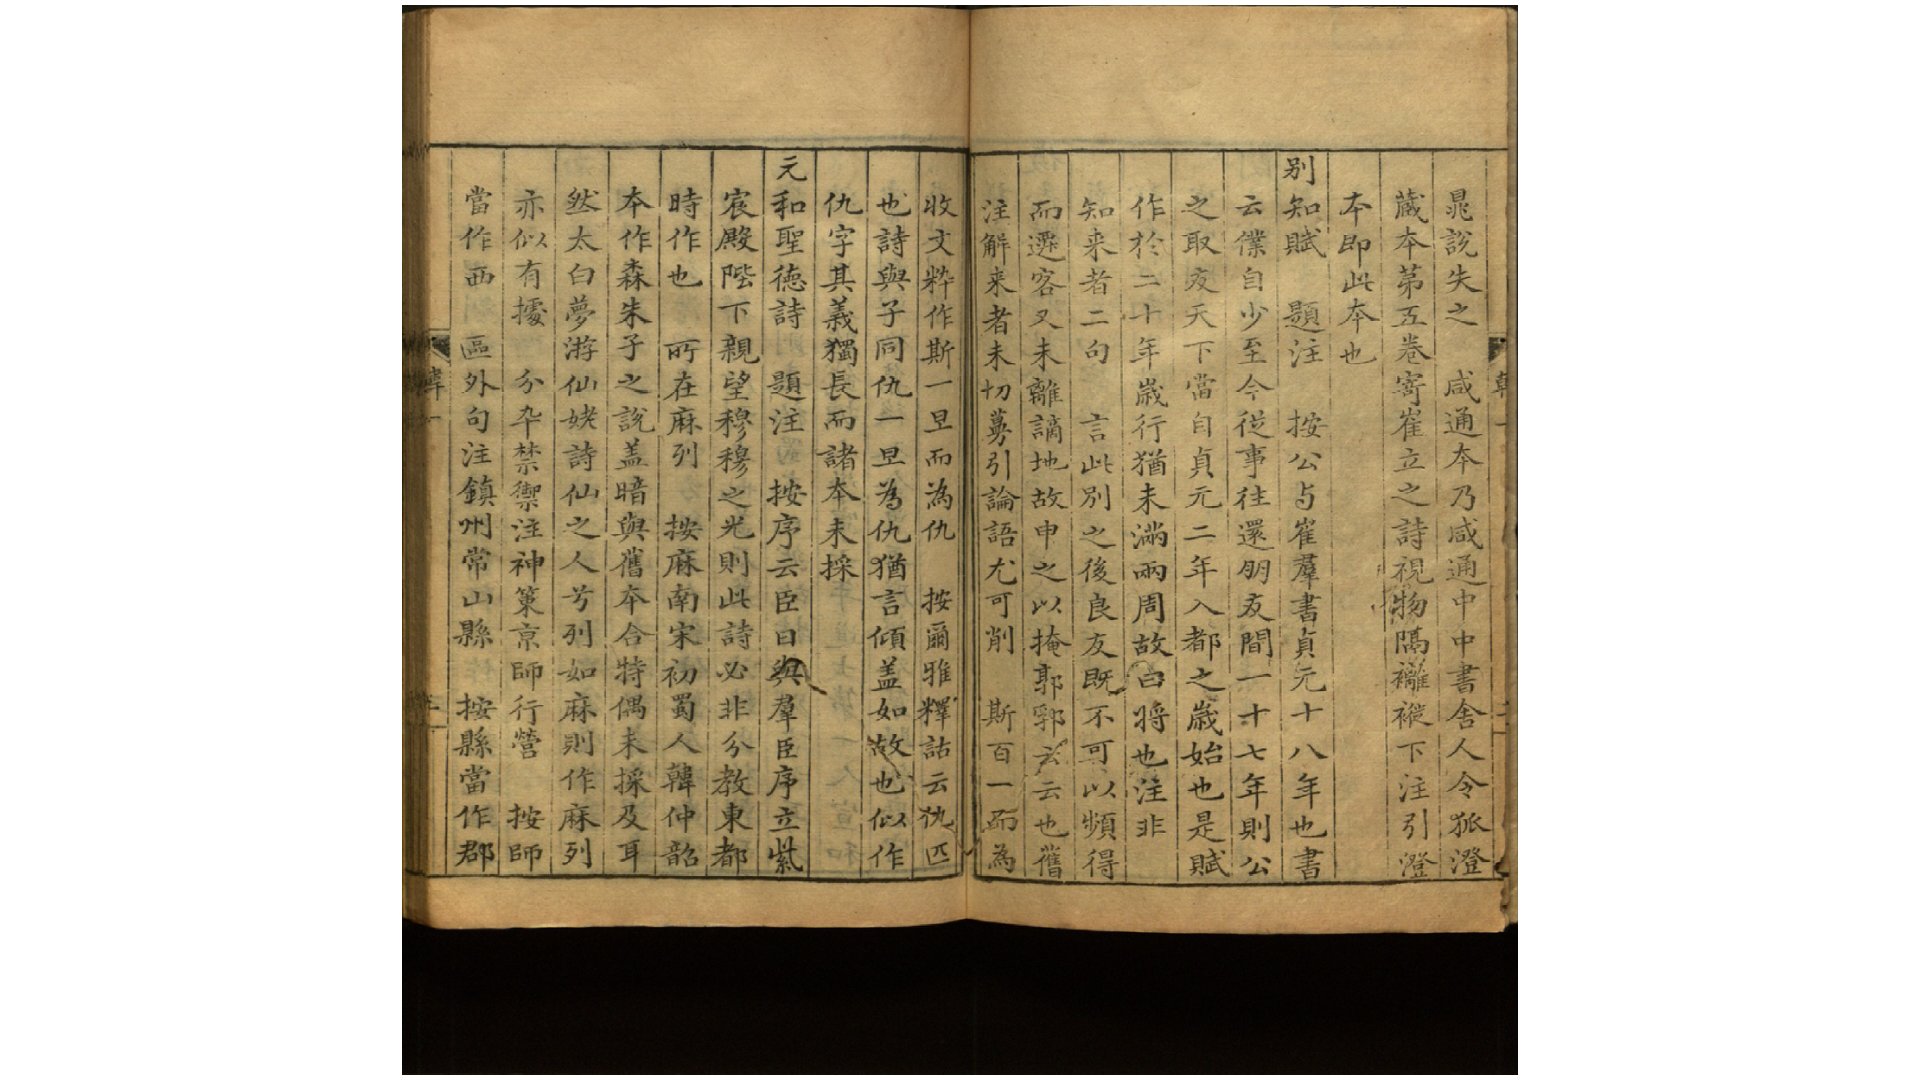 晁說失之　咸通本乃咸通中中書舍人令狐澄
藏本第五卷寄崔立之詩視物隔褵褷下注引澄
本即此本也
别知賦　題注　按公与崔羣書貞元十八年也書
云僕自少至今從事往還朋友間一十七年則公
之取友天下當自貞元二年入都之歲始也是賦
作於二十年歲行猶未滿兩周故白將也注非
知来者二句　言此别之後良友既不可以頻得
而遷客又未離謫地故申之以掩郭郛云云也舊
注解来者未切蕚引論語尤可削　斯百一而為
收文粹作斯一旦而為仇　按爾雅釋詁云仇匹
也詩與子同仇一旦為仇猶言傾盖如故也似作
仇字其義獨長而諸本未採
元和聖德詩　題注　按序云臣日與羣臣序立紫
宸殿陛下親望穆穆之光則此詩必非分教東都
時作也　所在麻列　按麻南宋初蜀人韓仲韶
本作森朱子之說盖暗與舊本合特偶未採及耳
然太白夢游仙姥詩仙之人兮列如麻則作麻列
亦似有據　分卒禁禦注神策京師行營　按師
當作西　區外句注鎮州常山縣　按縣當作郡